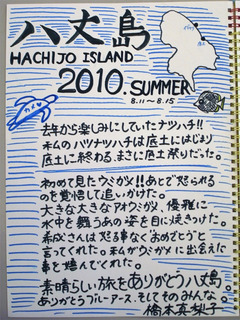 八丈島
HACHIJO ISLAND
2010. SUMMER
8.11～8.15
カメ
去年から楽しみにしていたナツハチ!!
私のハツナツハチは底土にはじまり
底土に終わる、まさに底土祭りだった。
初めて見たウミガメ!!あとで怒られる
のを覚悟して追いかけた。
大きな大きなアオウミガメ、優雅に
水中を舞うあの姿を目に焼きつけた。
さんは怒る事なくおめでとうと
言ってくれた。私がウミガメに出会えた
事を喜んでくれた。
素晴らしい旅をありがとう八丈島。
ありがとうブルーアース、そしてそのみんな。
橋本真梨子